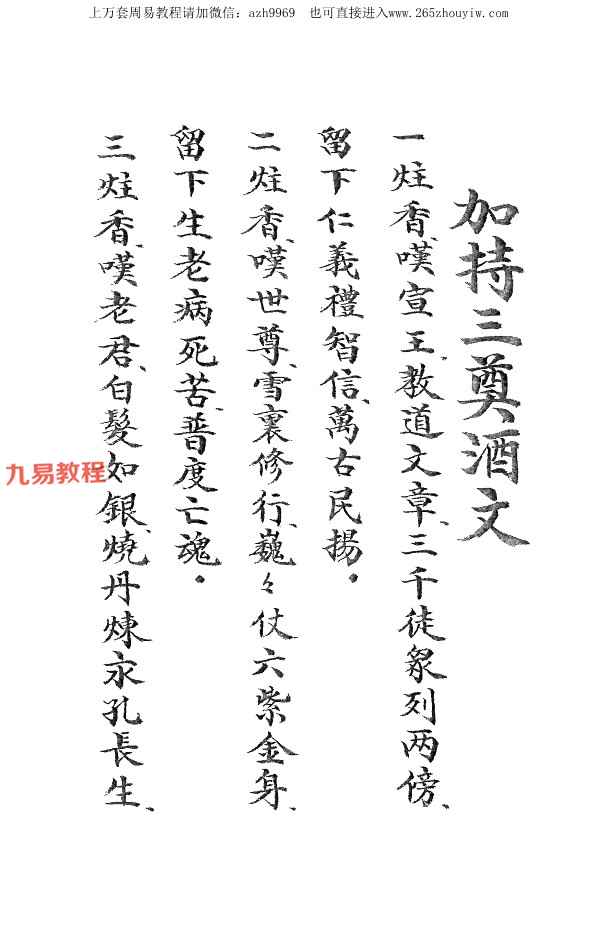 上万套周易教程请加微信：azh9969 也可直接进入www.265zhouyiw.com
加持三奠酒文
一炷香、嘆宣王、教道文章、三千徒衆列两傍、
留下仁義禮智信、萬古民揚。
二炷香、嘆世尊、雪裏修行、巍々仗六紫金身、
留下生老病死苦、普度亡魂。
三炷香、嘆老君、白髮如銀、燒丹煉永孔長生、
九易教程